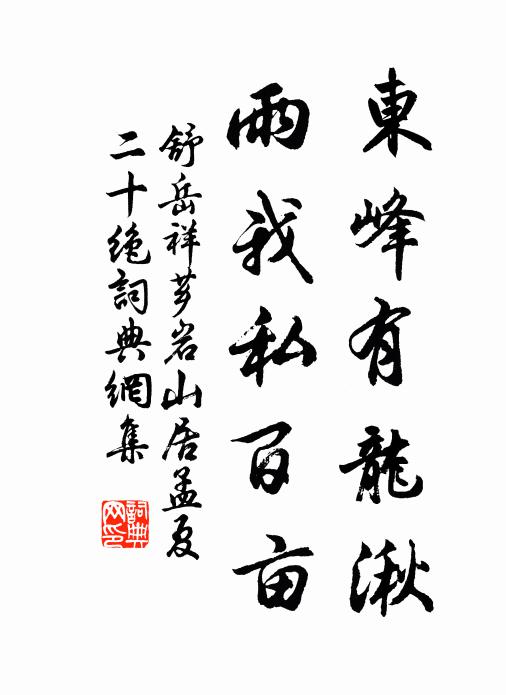 東峰有龍湫
雨我私百亩
舒岳祥芗岩山居孟夏
二十绝詞典網集
詞典网印